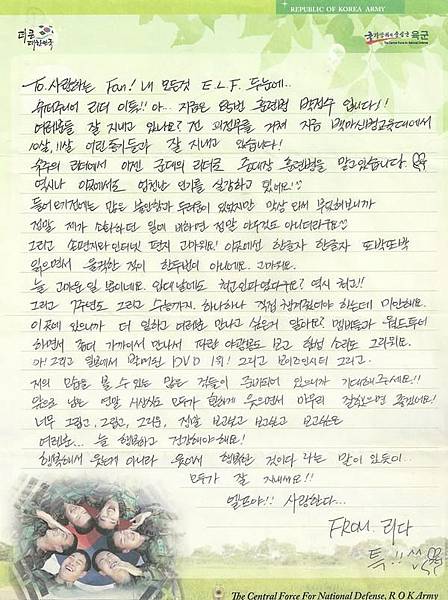 REPUBLIC OF KOREA ARMY
더 큰
대한민국
국가방위의 중심군 육군
The Central Force for National Defense
To. 사랑하는 Fan! 내 모든것 E.L.F. 들에게..
슈퍼주니어 리더 이특!! 아.. 지금은 85번 훈련병 박정수 입니다!!
여러분들 잘 지내고 있나요? 전 지금 백마신병교육대에서
10살, 11살 어린 동기들과 잘 지내고 있습니다!
슈주의 리더에서 이젠 군대의 리더로 중대장 훈련병을 맡고있습니다
역시나 이곳에서도 엄청난 인기를 실감하고 있네요!
들어오기전에는 많은 불안함과 두려움이 있었지만 막상 와서 부딪혀보니까
정말 제가 소화하던 일에 비하면 정말 아무것도 아니더라구요
그리고 손편지와 인터넷 편지 고마워요! 이곳에선 한글자 한글자 또박또박
읽으면서 울컥한 적이 한두번이 아니에요. 고마워요.
늘 고마운 일 뿐이네요. 역시 최고!!
그리고 7주년도 그리고 수능까지. 하나하나 직접 챙겨줘야 하는데 미안해요.
이곳에 있으니까 더 일하고 여러분 만나고 싶은거 알아요? 멤버들과 월드투어
하면서 좀더 가까이서 만나서 파란 야광봉도 보고 함성 소리도 그리워요.
아! 그리고 일본에서 발매된 DVD 1위! 그리고 보이즈인시티 그리고..
저의 모습을 볼 수 있는 많은 것들이 준비되어 있으니까 기대해주세요!!
앞으로 남은 연말 시상식도 모두가 함께 웃으면서 마무리 잘했으면 좋겠네요!
너무 그립고, 그립고, 그리운, 정말 보고싶고 보고싶고 보고싶은
여러분... 늘 행복하고 건강해야해요!
행복해서 웃는게 아니라 웃어서 행복한 것이다 라는 말이 있듯이..
모두가 잘 지내세요!!
엘프야!! 사랑한다...
FROM. 리다
특!!
The Central Force For National Defense, R O K Army